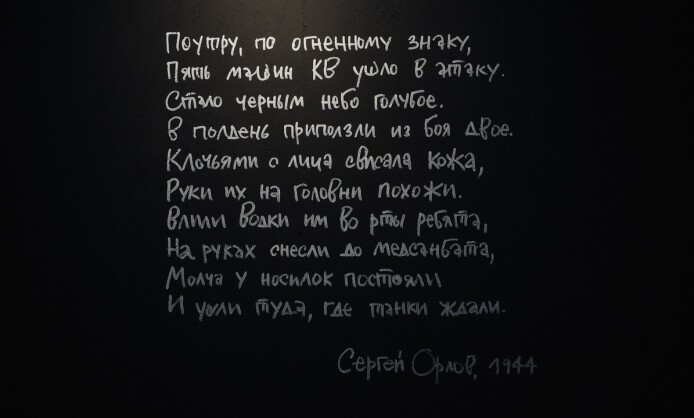 Поутру, по огненному знаку,
Пять машин КВ ушло в атаку.
Стало черным небо голубое.
В полдень приползли из боя двое.
Клочьями с лица свисала кожа,
Руки их на головни похожи.
Влили водки им во рты ребята,
На руках снесли до медсанбата,
Молча у носилок постояли
И ушли туда, где танки ждали.
Сергей Орлов, 1944